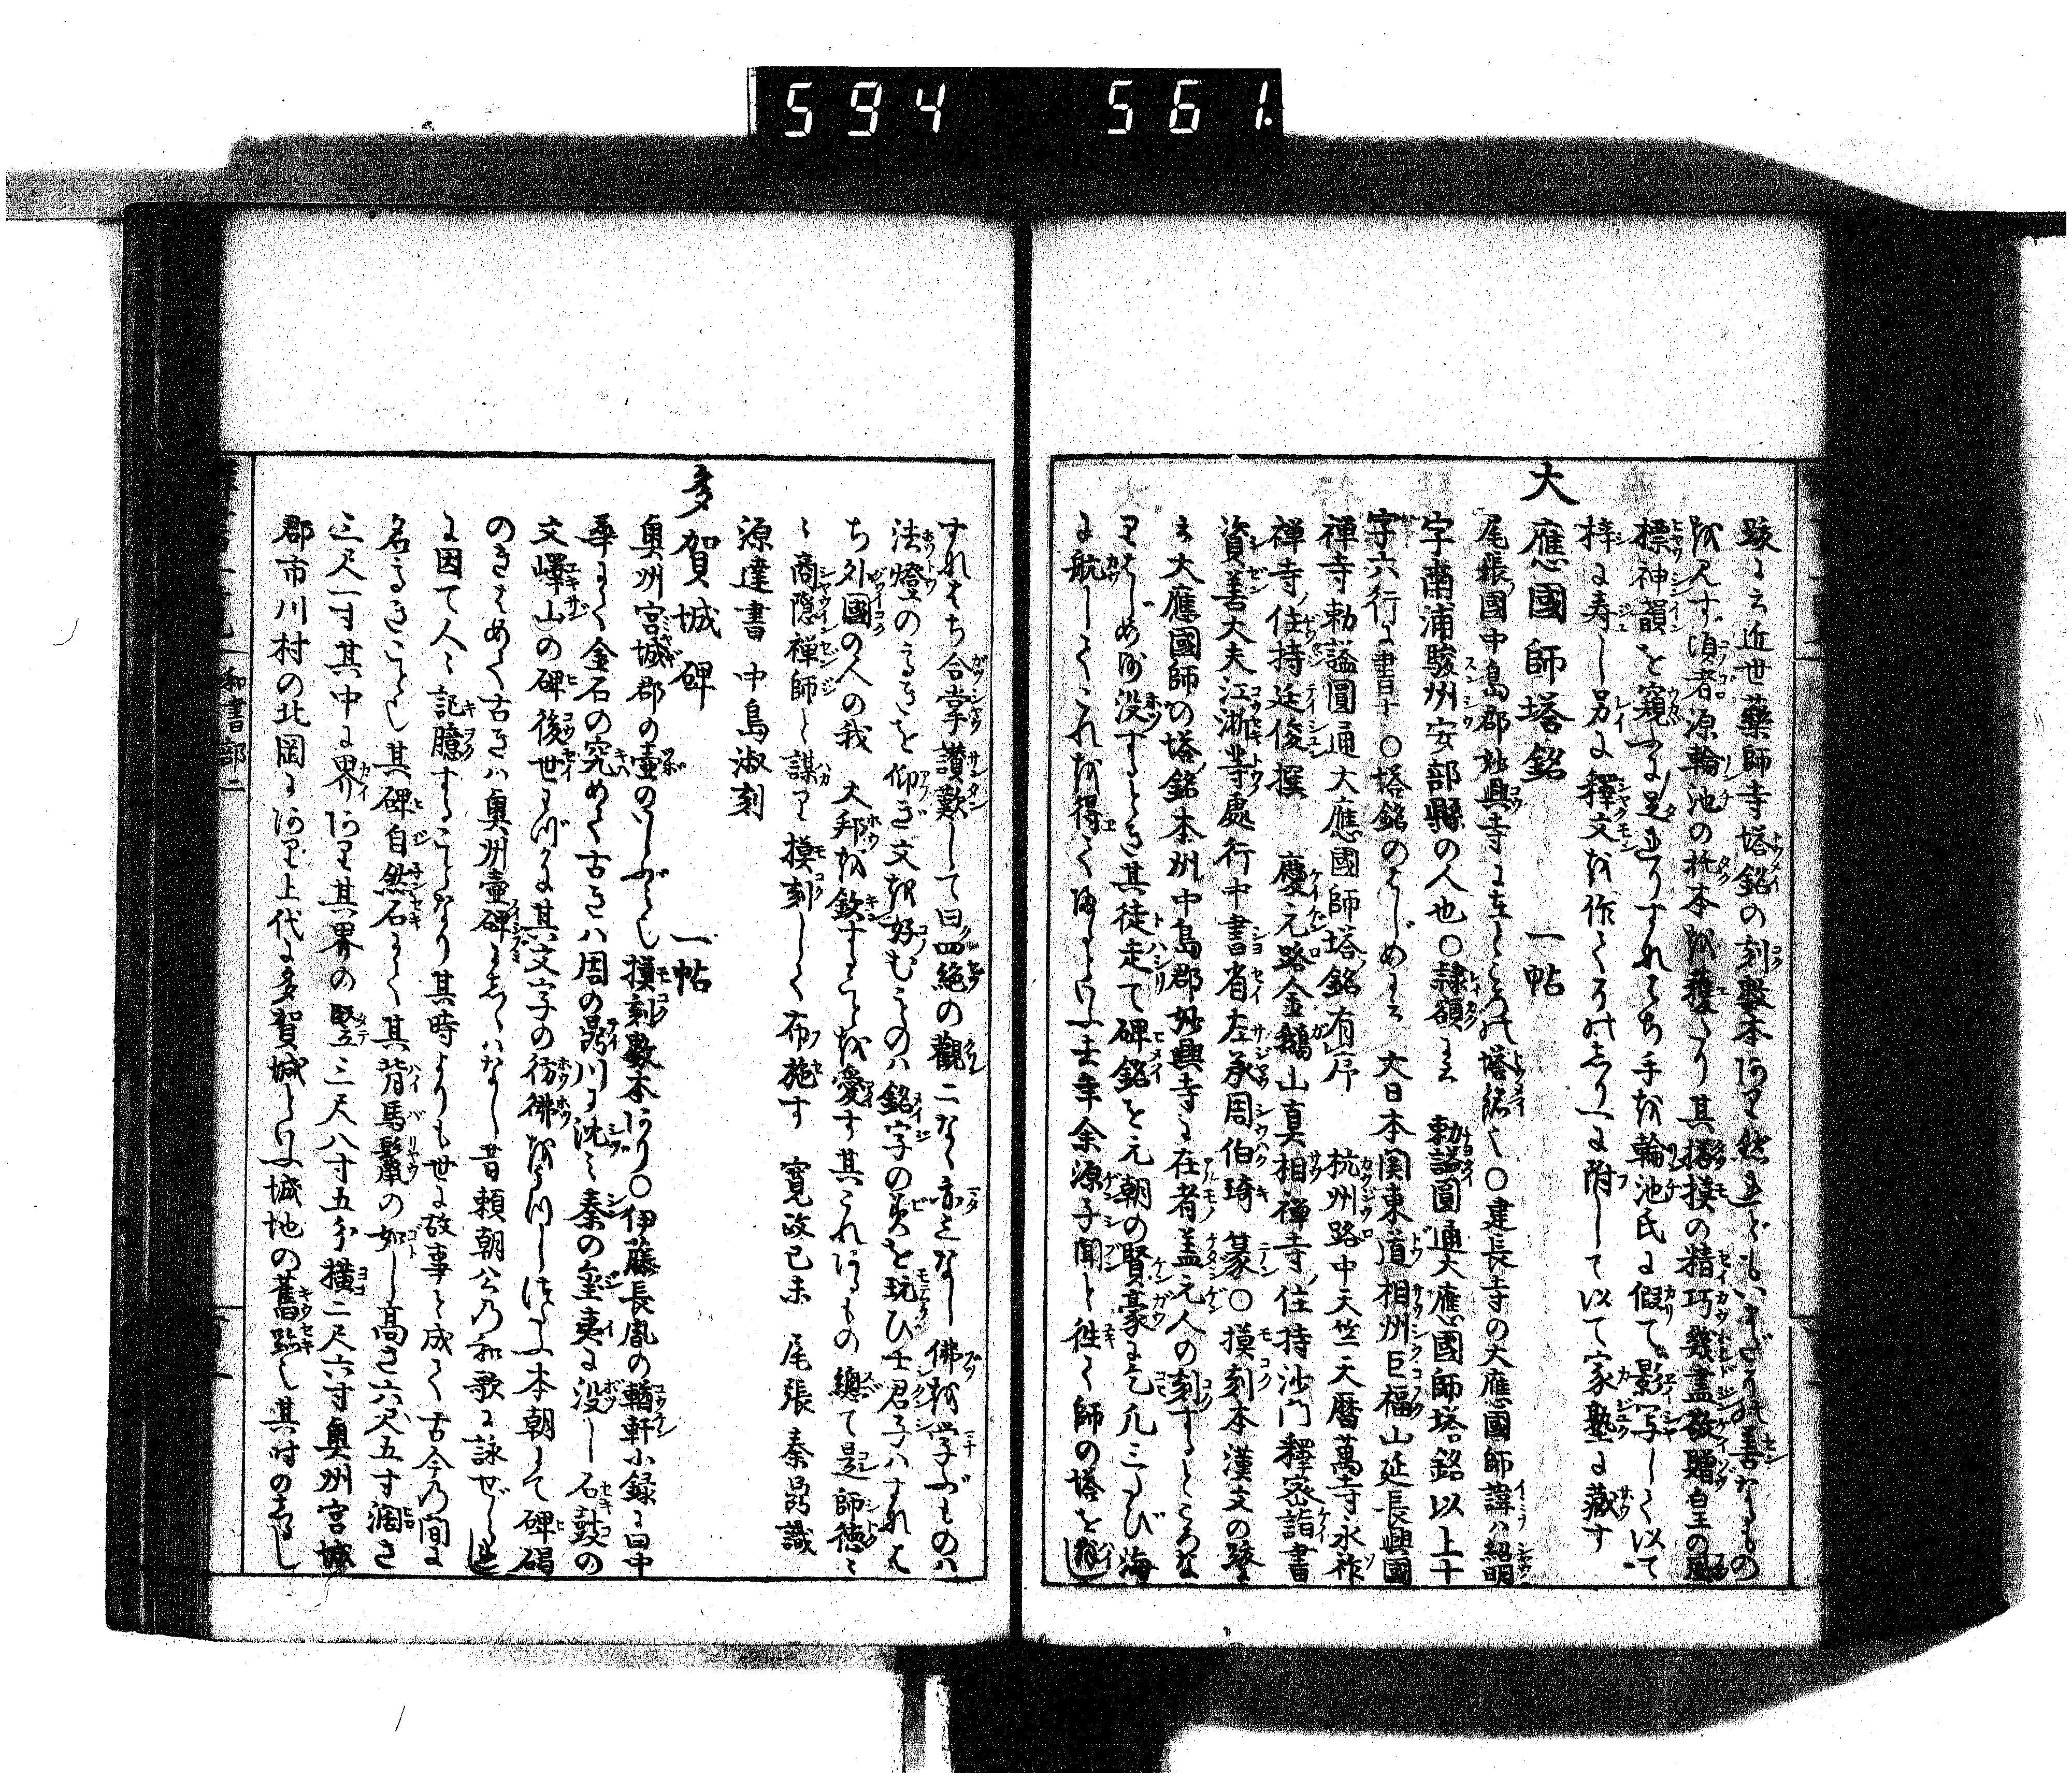 594 561.
跋に云近世藥師寺塔銘の刻數本あり然れどもいまだその善なるもの
を見ず頃者源輪池の拓本を獲たり其搨摸の精巧幾盡敬贈皇の風
標神韻を窺ふに足れりすなはち手を輪池氏に假て影写して以て
梓に寿し另に釋文を作てその後に附して以て家塾に藏す
大應國師塔銘 一帖
尾張國中島郡妙興寺に在ところの塔銘也○建長寺の大應國師諱ハ紹明
字南浦駿州安部縣の人也○隷額に云 勅謚圓通大應國師塔銘以上十
字六行に書す○塔銘のはじめに云 大日本関東道相州巨福山延長興國
禅寺勅謚圓通大應國師塔銘有序 杭州路中天竺天曆萬寺永祚
禅寺住持廷俊撰 慶元路金鵝山真相禅寺住持沙門釋密詣書
資善大夫江淅等處行中書省左丞周伯琦篆○摸刻本漢文の跋に
云大應國師の塔銘本州中島郡妙興寺に在者蓋元人の刻するところな
りはじめ師没するとき其徒走て碑銘を元朝の賢豪に乞凡三たび海
に航してこれを得て帰るといふ壬年余源子聞と徃て師の塔を拜し
すなはち合掌讃歎して曰四絶の觀二なく亦となし佛を学ぶものハ
法燈のふるきを仰ぎ文を好むものハ銘字の美を玩び士君子ハすなは
ち外國の人の我 大邦を欽することを愛す其これあるもの總て是師徳に
と商隠禅師と謀り摸刻して布施す 寛政己未 尾張秦鼎識
源達書 中島淑刻
多賀城碑 一帖
奥州宮城郡の壷のいしぶみ也摸刻數本あり○伊藤長胤の輶軒小録に曰中
華にて金石の究めて古きハ周の鼎川に沈ミ秦の金夷に没し石鼓の
文嶧山の碑後世わづかに其文字の彷彿をうつし傳ふ本朝にて碑碣
のきはめて古きハ奥州壷碑にしくハなし昔頼朝公乃和歌に詠ぜられし
に因て人々記臆することなり其時よりも世に故事と成て古今乃間に
名たかきことし其碑自然石にて其背馬鬣の如し高さ六尺五寸濶さ
三尺一寸其中に界あり其界の竪三尺八寸五分横二尺六寸奥州宮城
郡市川村の北岡にあり上代に多賀城といふ城地の舊趾し其时のしるし
和書部二